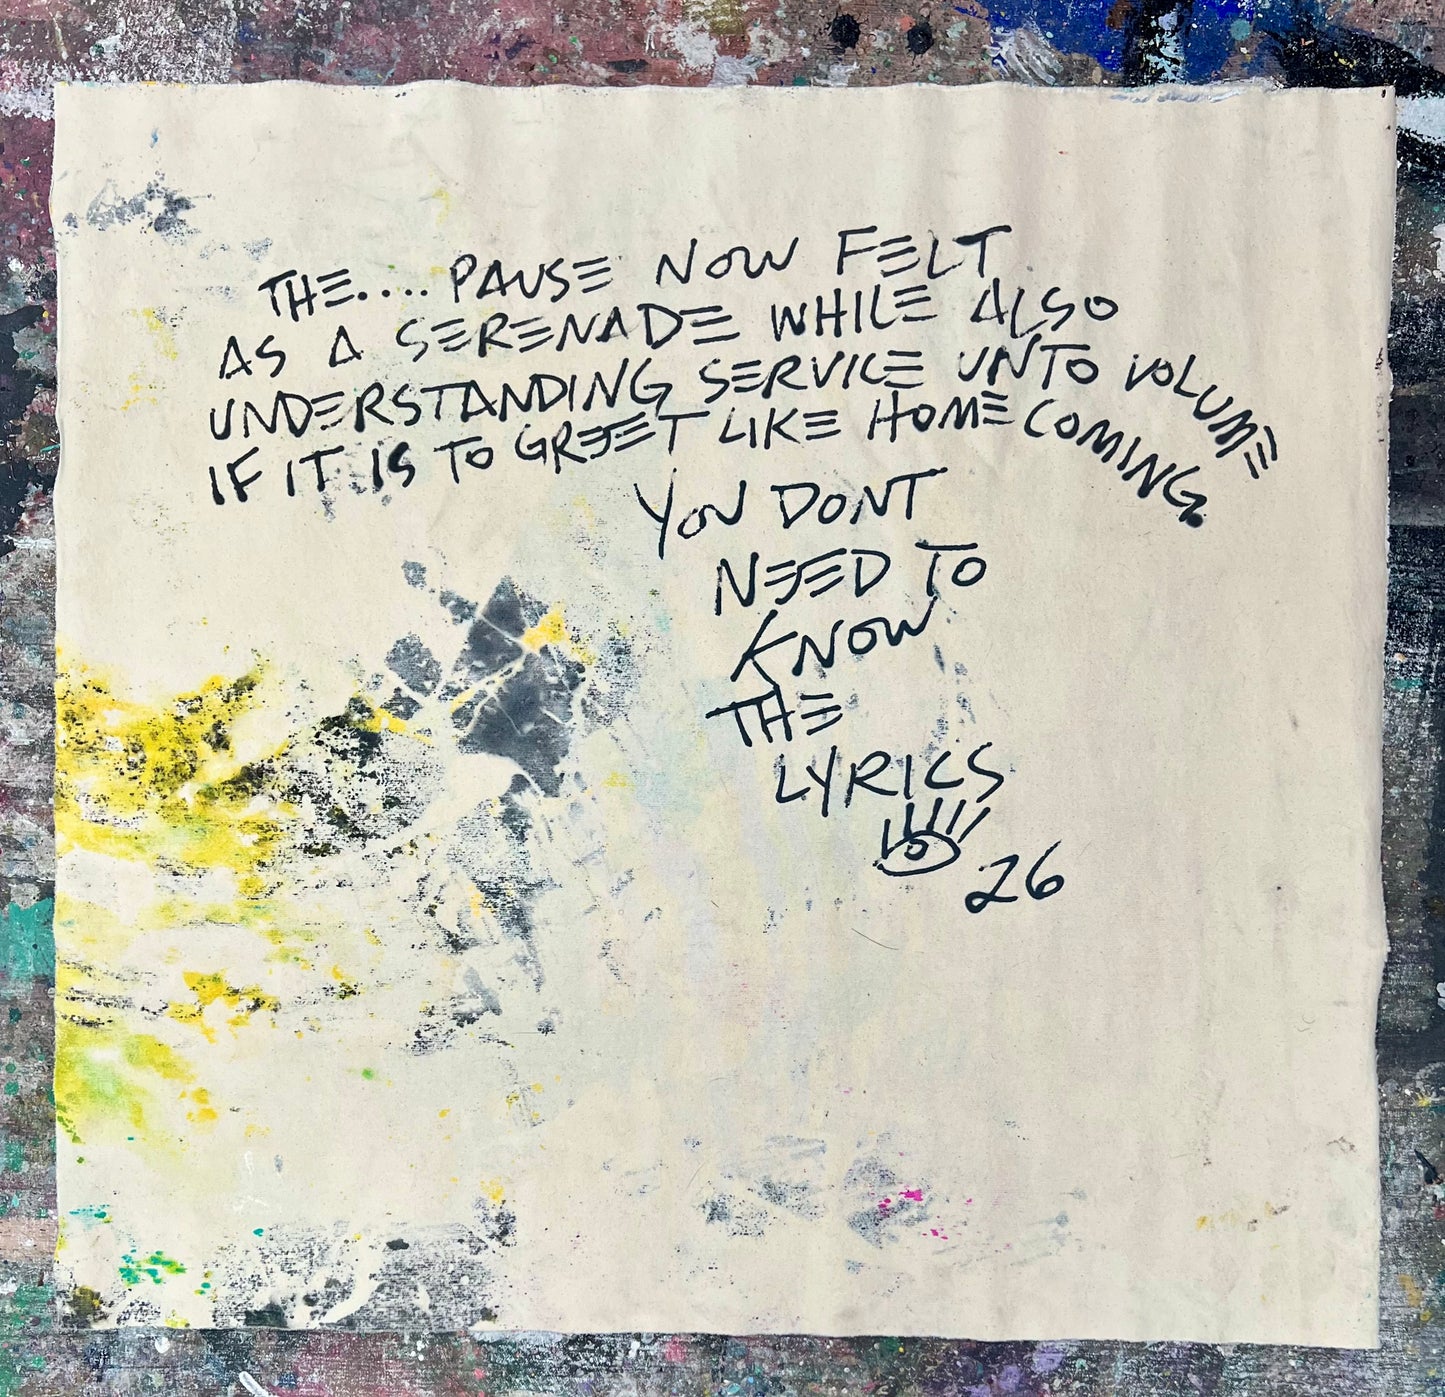 THE.... PAUSE NOW FELT
AS A SERENADE WHILE ALSO
UNDERSTANDING SERVICE UNTO VOLUME
IF IT IS TO GREET LIKE HOMECOMING.
YOU DONT
NEED TO
KNOW
THE
LYRICS
26